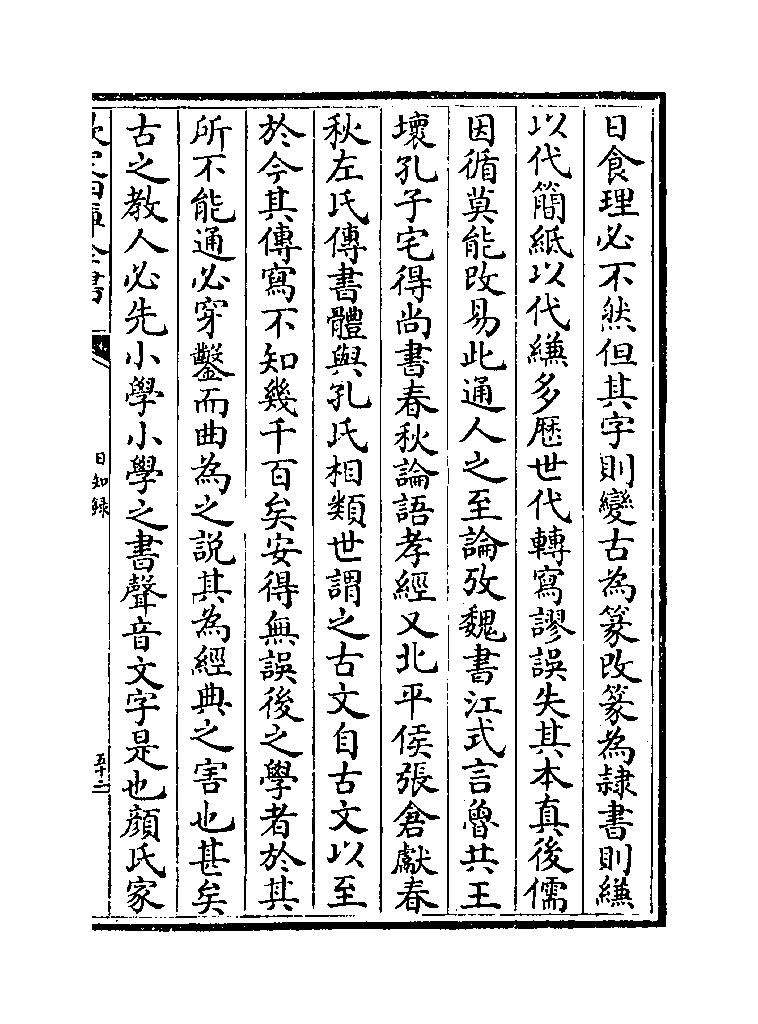 日食理必不然但其字則變古為篆改篆為隸書則縑
以代簡紙以代縑多歷世代轉寫謬誤失其本真後儒
因循莫能改易此通人之至論攷魏書江式言魯共王
壞孔子宅得尚書春秋論語孝經又北平侯張倉獻春
秋左氏傳書體與孔氏相類世謂之古文自古文以至
於今其傳寫不知幾千百矣安得無誤後之學者於其
所不能通必穿鑿而曲為之説其為經典之害也甚矣
古之教人必先小學小學之書聲音文字是也顔氏家
欽定四庫全書
日知録
五十二